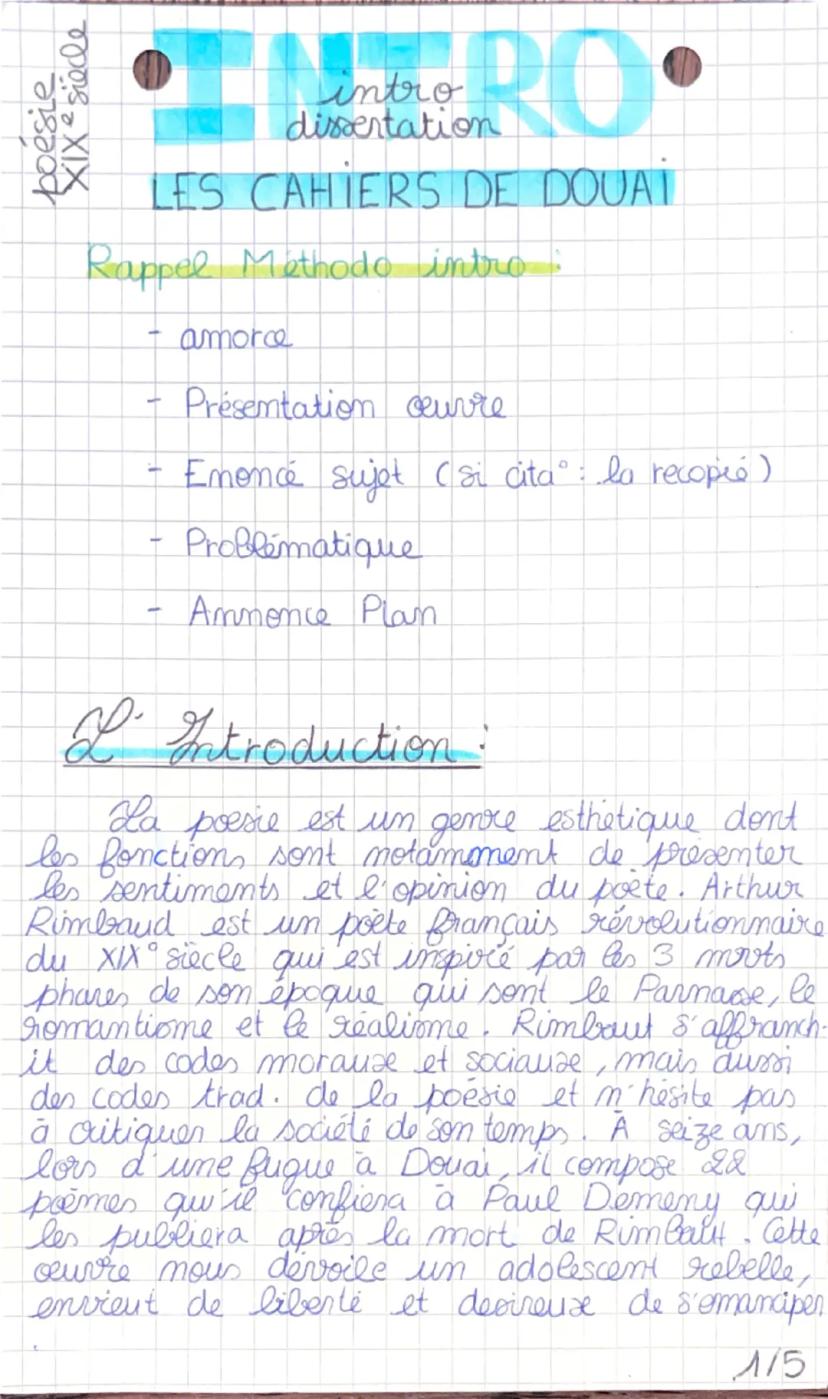 poésie
XIXe siècle
INTRO
intro
dissertation
LES CAHIERS DE DOUAI
Rappel Méthodo intro :
- amorce
- Présentation œuvre
- Enoncé sujet (si cita° : la recopié)
- Problématique
- Annonce Plan
L'Introduction :
La poesie est un genre esthétique dont
les fonctions sont notamment de présenter
les sentiments et l'opinion du poète. Arthur
Rimbaud est un poète français révolutionnaire
du XIX° siècle qui est inspiré par les 3 mvts
phares de son époque qui sont le Parnasse, le
romantisme et le réalisme. Rimbaut s'affranch-
it des codes moraux et sociaux, mais aussi
des codes trad. de la poésie et n'hésite pas
à critiquer la société de son temps. À seize ans,
lors d'une fugue à Douai, il compose 22
poèmes qu'il confiera à Paul Demeny qui
les publiera après la mort de Rimbaut. Cette
œuvre nous dévoile un adolescent rebelle,
envieut de liberté et desireux de s'emanciper
.
1/5